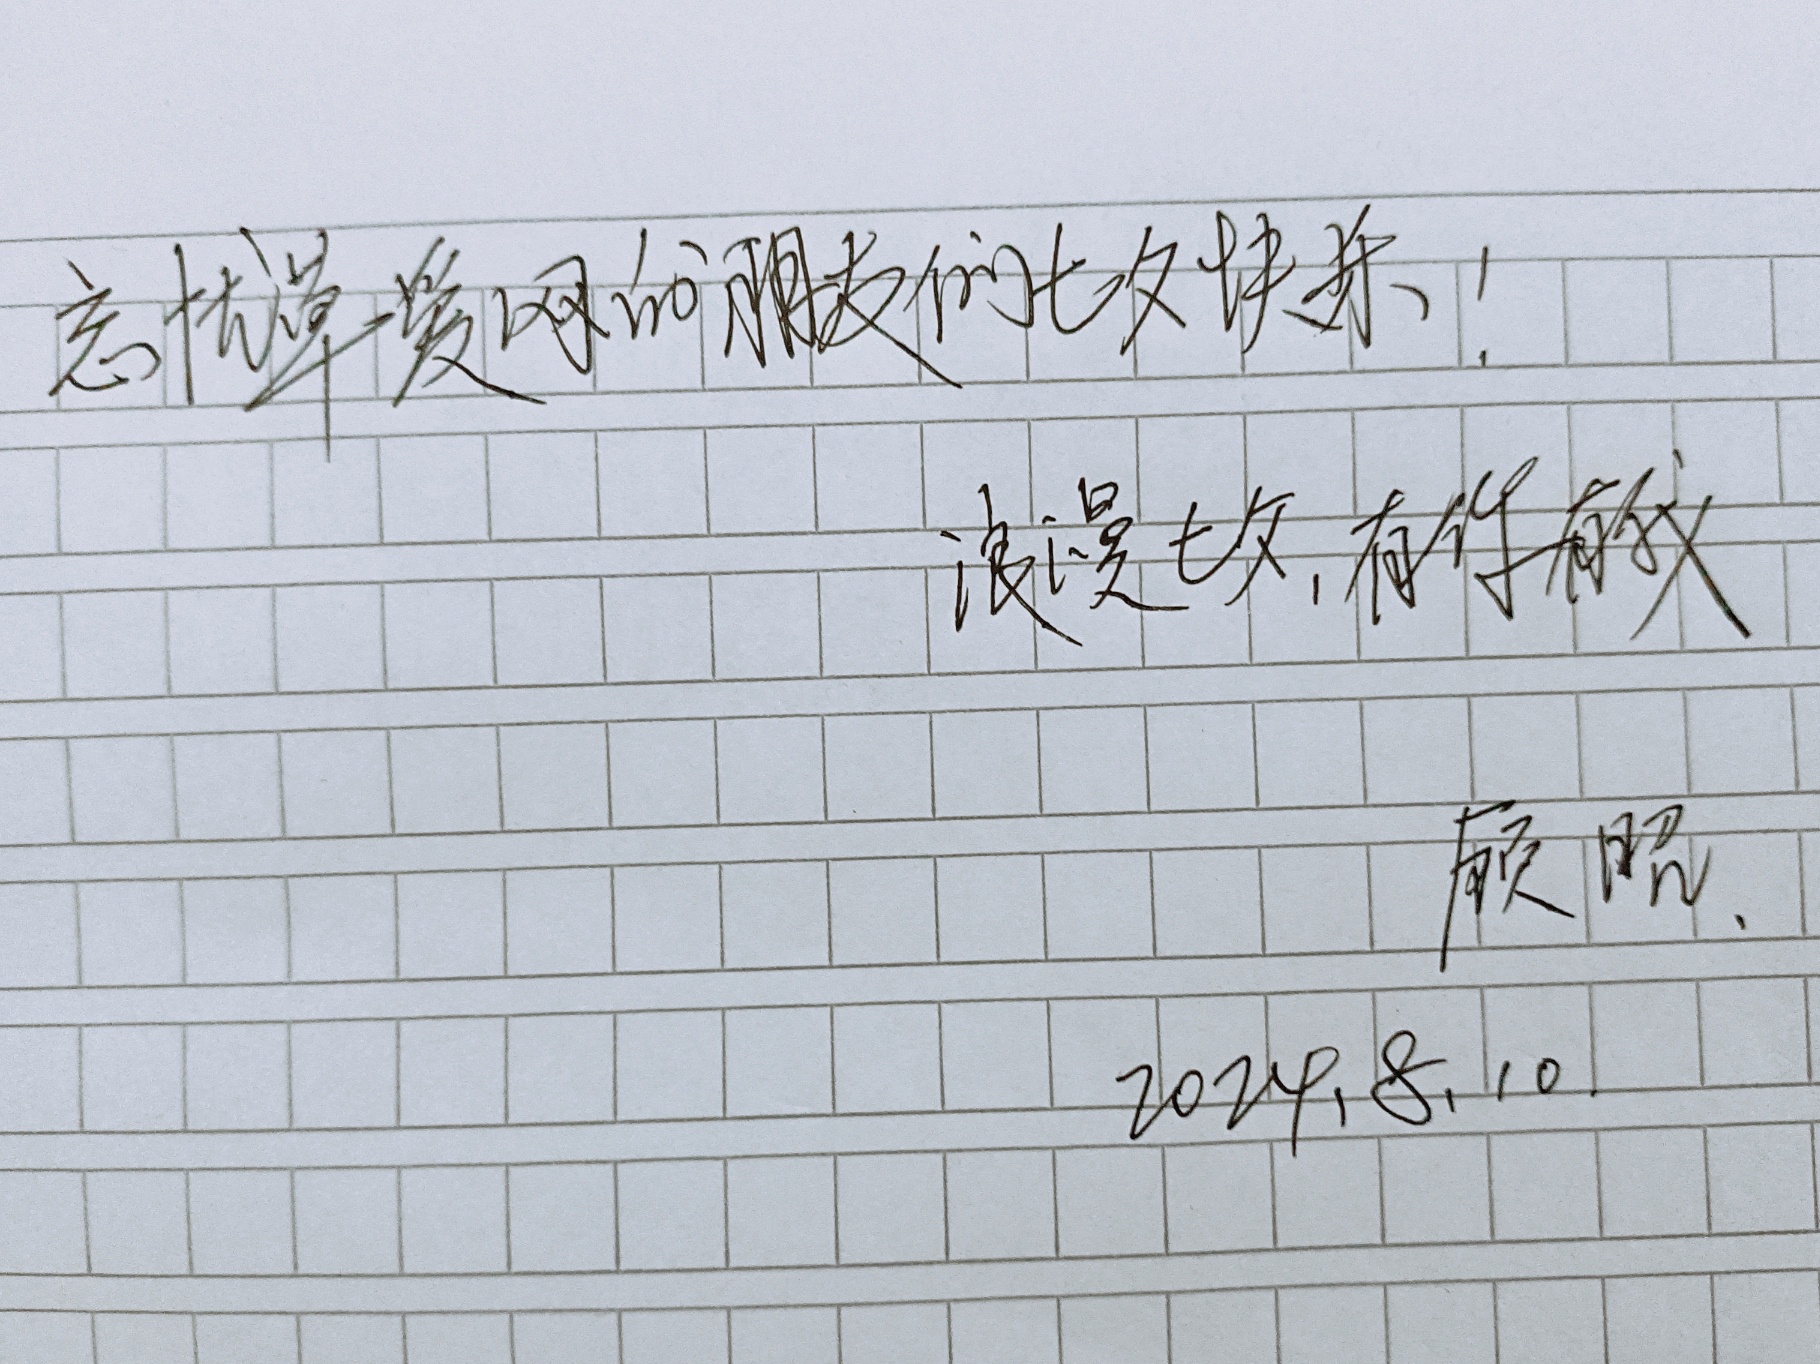 忘忧草爱网的朋友们七夕快乐！
浪漫七夕，有你有我
顾照.
2024.8.10.